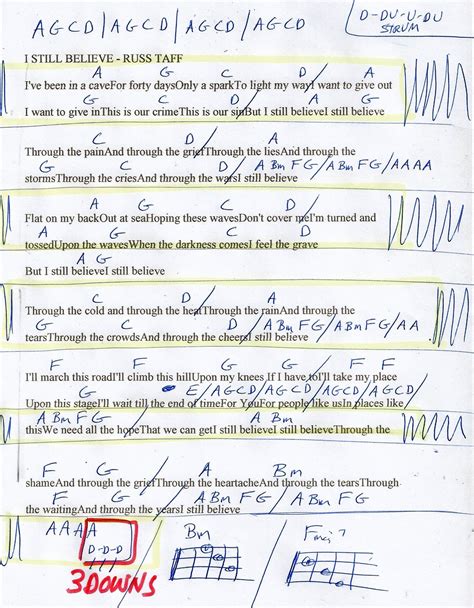 AGCD/AGCD/AGCD/AGCD
D-DU-U-DU
STRUM
I STILL BELIEVE - RUSS TAFF
A G C D A
I've been in a caveFor forty daysOnly a sparkTo light my wayI want to give out
G C D
I want to give inThis is our crimeThis is our sinBut I still believeI still believe
C D A
Through the painAnd through the griefThrough the liesAnd through the
G C D A Bm F G/A Bm F G/A A A A
stormsThrough the criesAnd through the warsI still believe
A G C D
Flat on my backOut at seaHoping these wavesDon't cover meI'm turned and
A G C D
tossedUpon the wavesWhen the darkness comesI feel the grave
A G
But I still believeI still believe
C D A
Through the cold and through the heatThrough the rainAnd through the
G C D A Bm F G/A Bm F G/A A
tearsThrough the crowdsAnd through the cheersI still believe
F G F G F
I'll march this roadI'll climb this hillUpon my knees If I have toI'll take my place
G E/AGCD/AGCD/AGCD/AGCD/
Upon this stageI'll wait till the end of timeFor YouFor people like usIn places like
A Bm F G A Bm
thisWe need all the hopeThat we can getI still believeI still believeThrough the
F G A Bm
shameAnd through the griefThrough the heartacheAnd through the tearsThrough
F G A Bm F G/A Bm F G
the waitingAnd through the yearsI still believe
A A A A
D-D-D
3 DOWNS
Bm